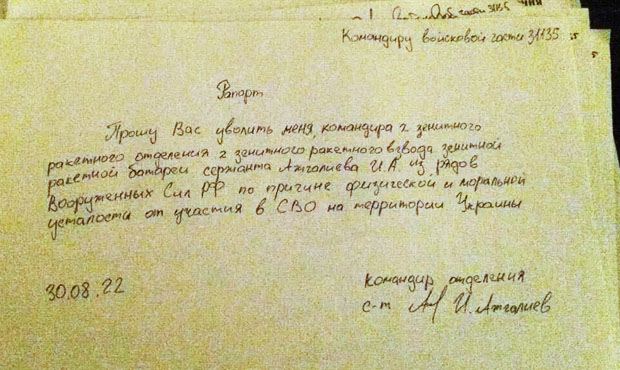 части 31135
Командиру войсковой части 31135
Рапорт
Прошу Вас уволить меня, командира 2 зенитного
ракетного отделения 2 зенитного ракетного взвода зенитной
ракетной батареи сержанта Атгалиева И.А. из рядов
Вооруженных Сил РФ по причине физической и моральной
усталости от участия в СВО на территории Украины
30.08.22
Командир отделения
с-т И. Атгалиев